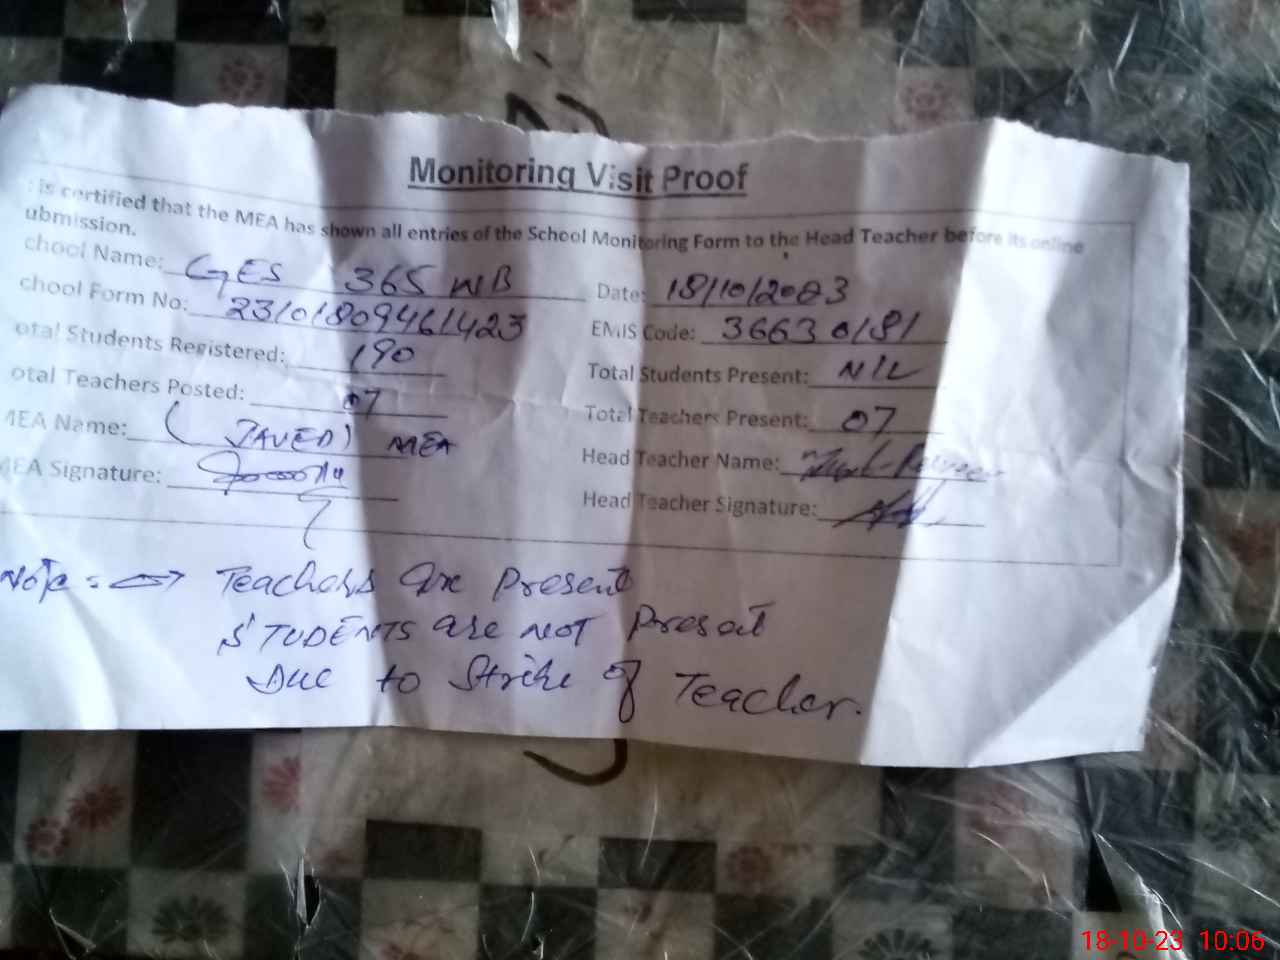 Monitoring Visit Proof
is certified that the MEA has shown all entries of the School Monitoring Form to the Head Teacher before its online
ubmission.
chool Name: GES 365 WB Date: 18/10/2023
chool Form No: 23101809461423 EMIS Code: 36630181
otal Students Registered: 190 Total Students Present: NIL
otal Teachers Posted: 07 Total Teachers Present: 07
MEA Name: (JAVED) MEA Head Teacher Name:
MEA Signature: Head Teacher Signature:
Note :⇒ Teachers are Present
STUDENTS are NOT Present
Due to Strike of Teacher.
18-10-23 10:06